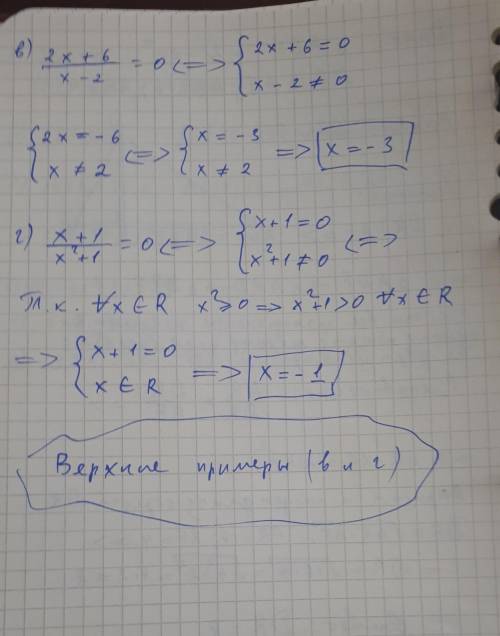 в) (2x + 6)/(x - 2) = 0 <=> { 2x + 6 = 0
x - 2 ≠ 0
{ 2x = -6 <=> { x = -3 => x = -3
x ≠ 2 x ≠ 2
г) (x + 1)/(x² + 1) = 0 <=> { x + 1 = 0 <=>
x² + 1 ≠ 0
Т.к. ∀x ∈ R x² ≥ 0 => x² + 1 > 0 ∀x ∈ R
=> { x + 1 = 0 => x = -1
x ∈ R
Верхние примеры (в и г)